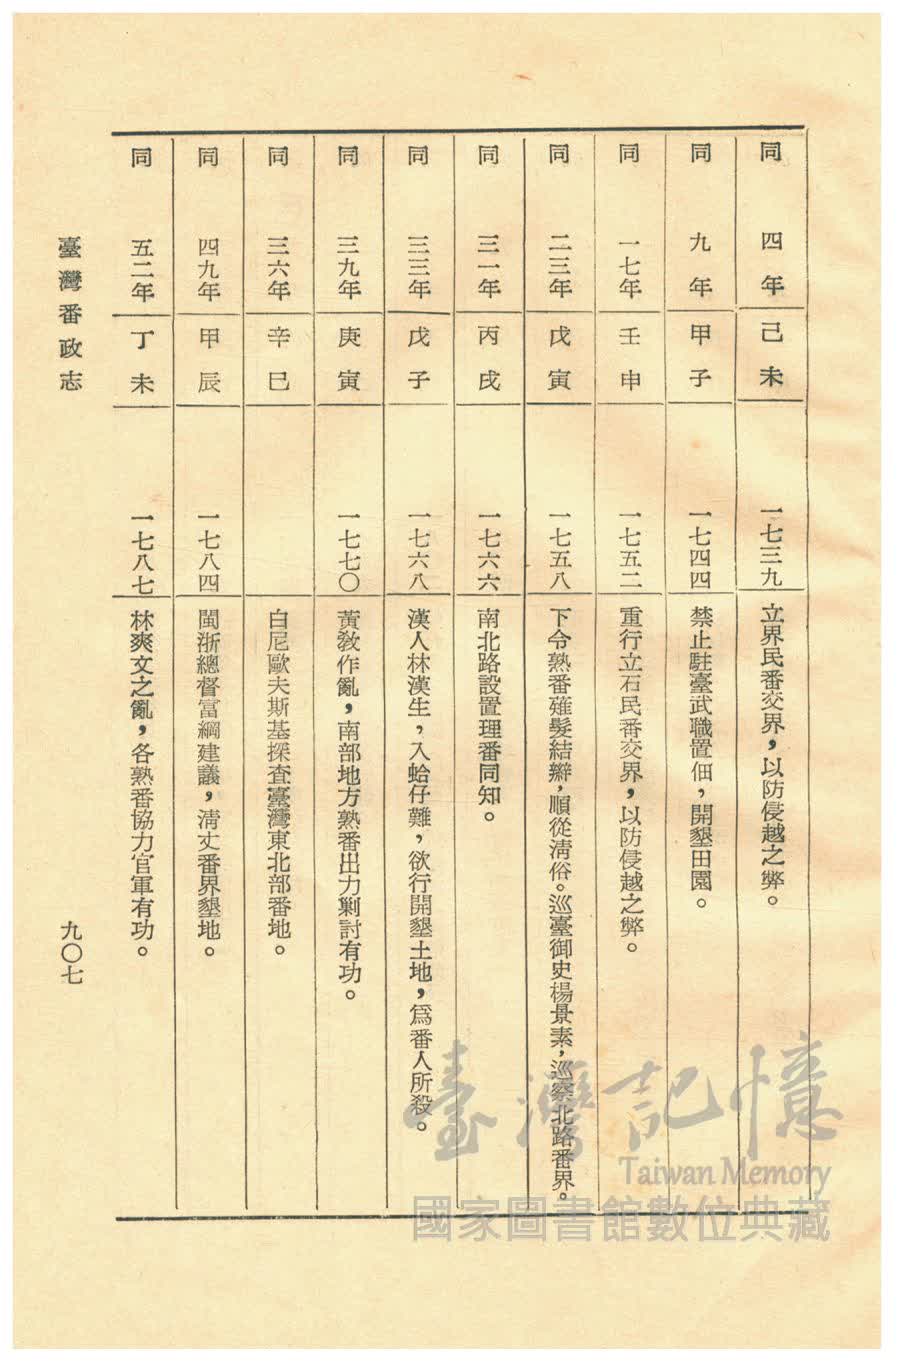 同 四年 己未 一七三九 立界民番交界，以防侵越之弊。
同 九年 甲子 一七四四 禁止駐臺武職置佃，開墾田園。
同 一七年 壬申 一七五二 重行立石民番交界，以防侵越之弊。
同 二三年 戊寅 一七五八 下令熟番薙髮結辮，順從淸俗。巡臺御史楊景素，巡察北路番界。
同 三一年 丙戌 一七六六 南北路設置理番同知。
同 三三年 戊子 一七六八 漢人林漢生，入蛤仔難，欲行開墾土地，爲番人所殺。
同 三九年 庚寅 一七七〇 黃敎作亂，南部地方熟番出力剿討有功。
同 三六年 辛巳 白尼歐夫斯基探查臺灣東北部番地。
同 四九年 甲辰 一七八四 閩浙總督富綱建議，淸丈番界墾地。
同 五二年 丁未 一七八七 林爽文之亂，各熟番協力官軍有功。
臺灣番政志
九〇七
臺灣記憶
Taiwan Memory
國家圖書館數位典藏